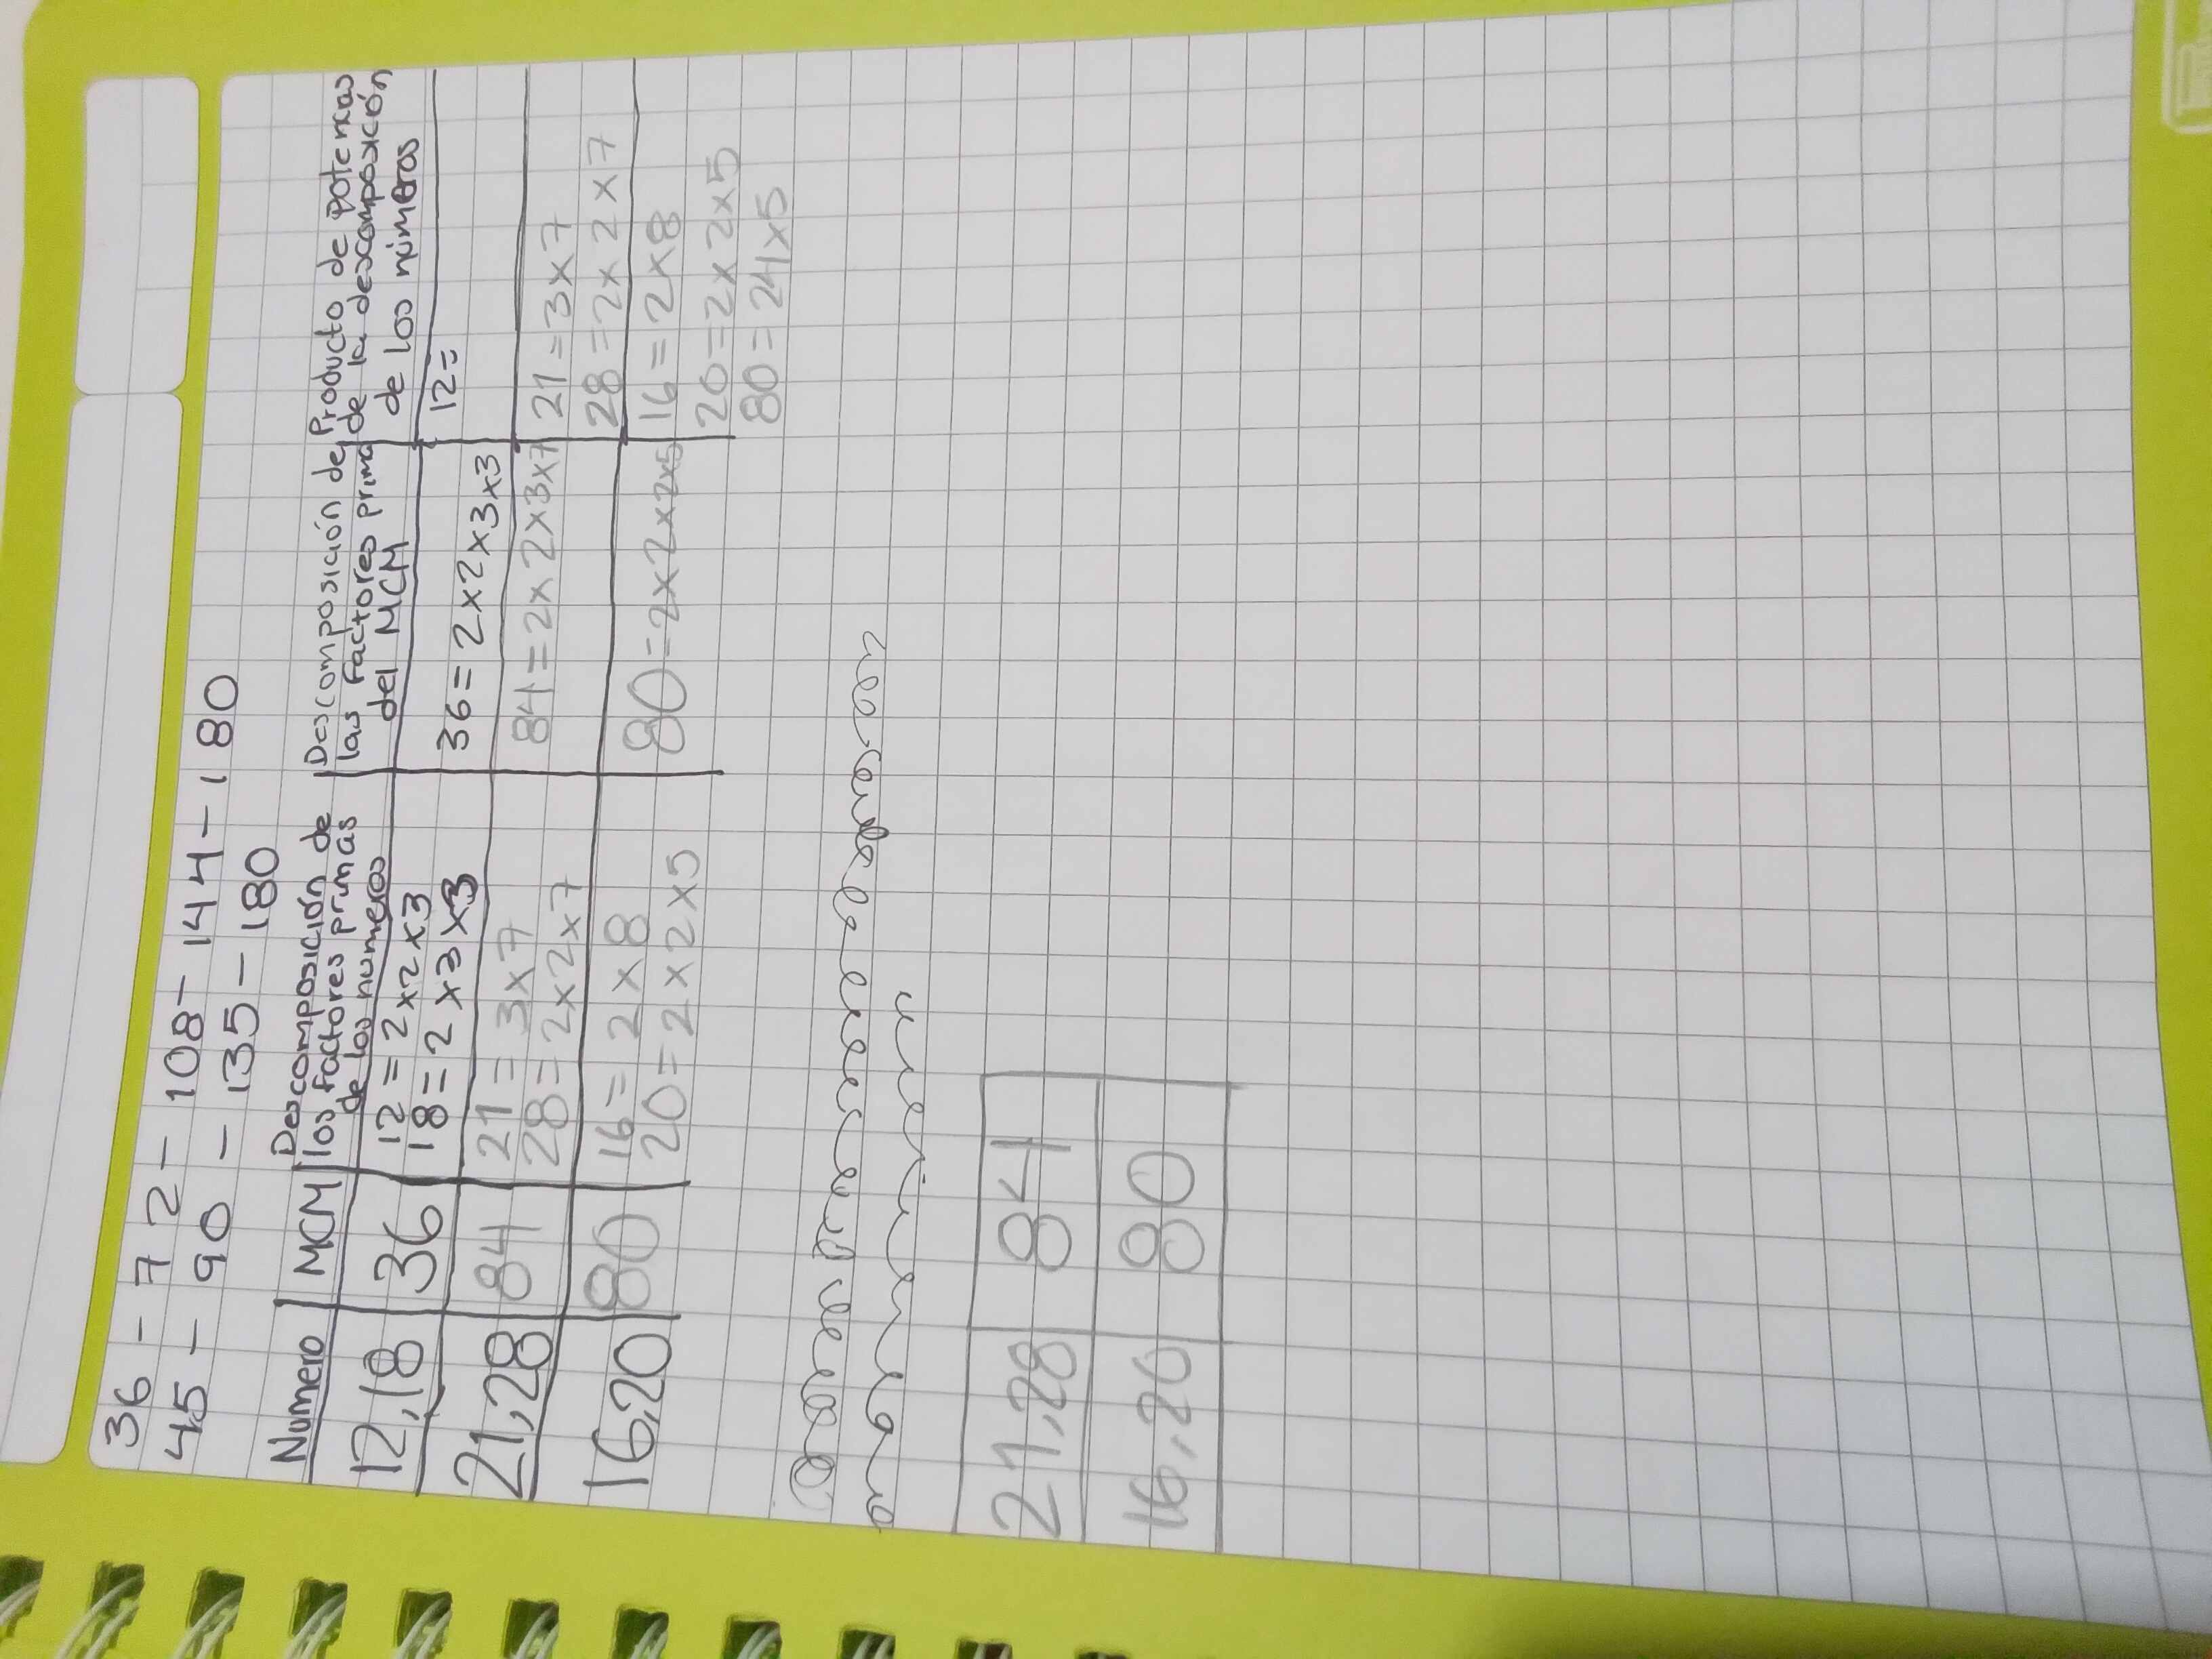 36 - 72 - 108 - 144 - 180
45 - 90 - 135 - 180
Numero
MCM
Descomposición de
los factores primas
de los numeros
Descomposición de
las factores prima
del MCM
Producto de potencias
de la descomposición
de los números
12,18
36
12 = 2x2x3
18 = 2x3x3
36 = 2x2x3x3
12 =
21,28
84
21 = 3x7
28 = 2x2x7
84 = 2x2x3x7
21 = 3x7
28 = 2x2x7
16,20
80
16 = 2x8
20 = 2x2x5
80 = 2x2x2x5
16 = 2x8
20 = 2x2x5
80 = 24x5
21,28 84
16,20 80